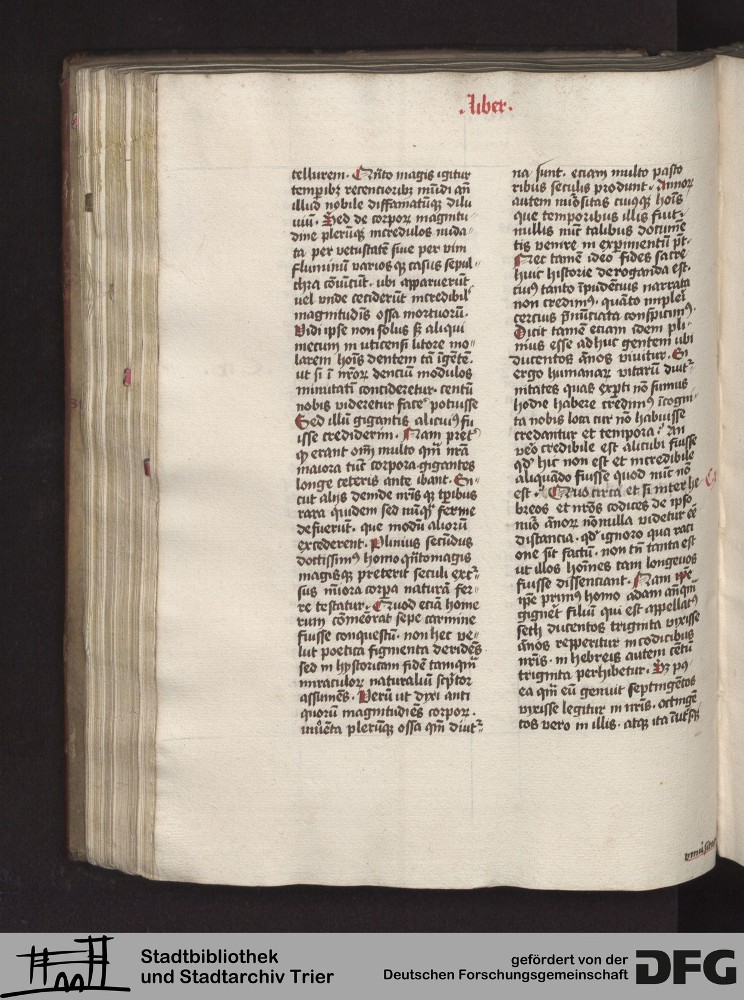 .Liber.
tellurem. Qn̄to magis igitur
temporibꝫ recencioribꝫ mūdi an̄
illud nobile diffamatūqꝫ dilu
uiū. Sed de corporꝫ magnitu
dine plerūqꝫ incredulos nuda
ta per vetustatē siue per vim
fluminū variosqꝫ casus sepul
chra cōuicūt. ubi apparuerūt
uel vnde ceciderūt incredibil
magnitudīs ossa mortuorū.
Vidi ipse non solus sꝫ aliqui
mecum in uticensi litore mo
larem hoīs dentem tā īgētē.
ut si ī nr̄orꝫ denciū modulos
minutati concideretur. centū
nobis videretur face potuisse
Sed illū gigantis alicuiꝰ fu
isse crediderim. Nam pret
qꝫ erant om̄ multo qm̄ nr̄a
maiora tūc corpora gigantes
longe ceteris ante ibant. Si
cut alijs deinde nr̄is qꝫ tp̄ibus
rara quidem sed nūqꝫ ferme
defuerūt. que modū aliorū
excederent. Plinius secūdus
doctissimꝰ homo qn̄tomagis
magisqꝫ preterit seculi excr
sus miora corpa naturā fer
re testatur. Quod eciā home
rum cōmeorat sepe carmine
fuisse conquestū. non hec ve
lut poetica figmenta deridēs
sed in hystoricam fidē tamqm̄
miraculorꝫ naturaliū scptor
assumēs. Verū ut dixi anti
quorū magnitudiēs corporꝫ.
inuēta plerūqꝫ ossa qm̄ diut
na sunt. eciam multo pasto
ribus seculis produnt. Annorꝫ
autem nūositas cuiqꝫ hoīs
que temporibus illis fuit.
nullis nūc talibus docume
tis venire in experimentū pt.
Nec tamē ideo fides sacre
huic historie deroganda est.
cuiꝰ tanto īpudētius narrata
non credimꝰ. quāto impleri
cercius p̄nūciata conspicimꝰ.
Dicit tamē eciam idem pli
nius esse adhuc gentem ubi
ducentos ānos viuitur. Si
ergo humanarꝫ vitarū diut
nitates quas exp̄ti nō sumus
hodie habere credimꝰ īcogni
ta nobis loca cur nō habuisse
credantur et tempora. An
veō credibile est alicubi fuisse
qd hic non est et incredibile
aliquādo fuisse quod nūc nō
est. Quo circa et si inter he
breos et nr̄os codices de ipso
nūo ānorꝫ nōnulla videtur ee
distancia. qd ignoro qua raci
one sit factū. non tn̄ tanta est
ut illos hoīnes tam longeuos
fuisse dissenciant. Nam ipē
ipē primꝰ homo adam anqm̄
gignēt filiū qui est appellatꝰ
seth ducentos triginta vixisse
ānos repperitur in codicibus
nr̄is. in hebreis autem cētū
triginta perhibetur. Sꝫ pꝰ
ea qm̄ eū genuit septingētos
vixisse legitur in nr̄is. octinge
tos vero in illis. atqꝫ ita
Stadtbibliothek
und Stadtarchiv Trier
gefördert von der
Deutschen Forschungsgemeinschaft
DFG